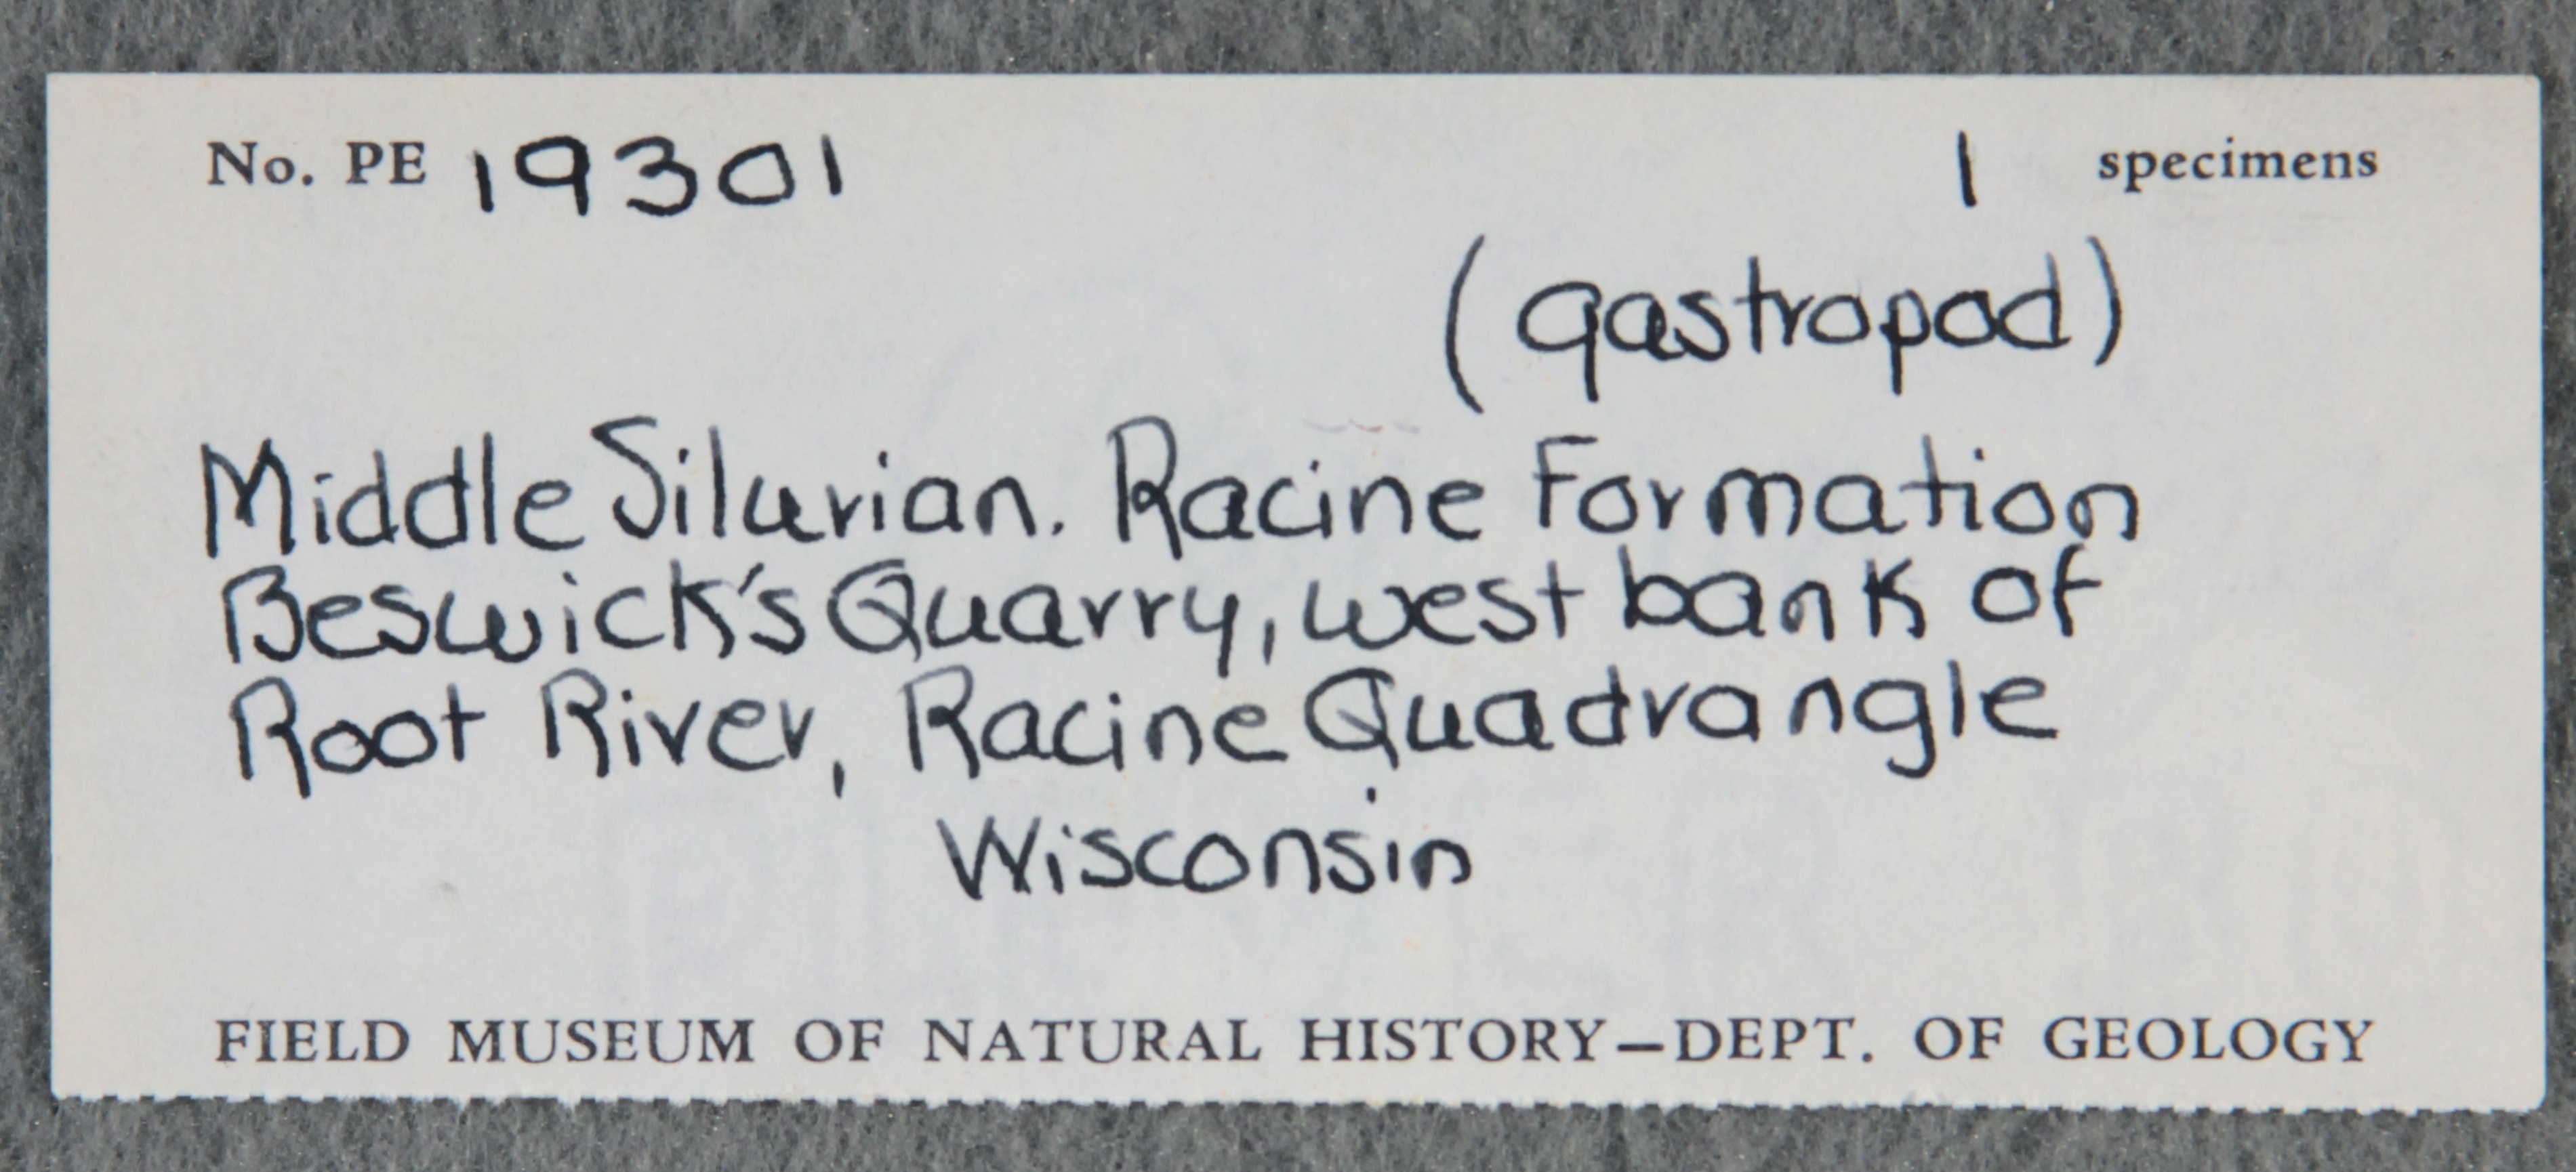 No. PE 19301 1 specimens
(gastropod)
Middle Silurian. Racine Formation
Beswick's Quarry, west bank of
Root River, Racine Quadrangle
Wisconsin
FIELD MUSEUM OF NATURAL HISTORY—DEPT. OF GEOLOGY